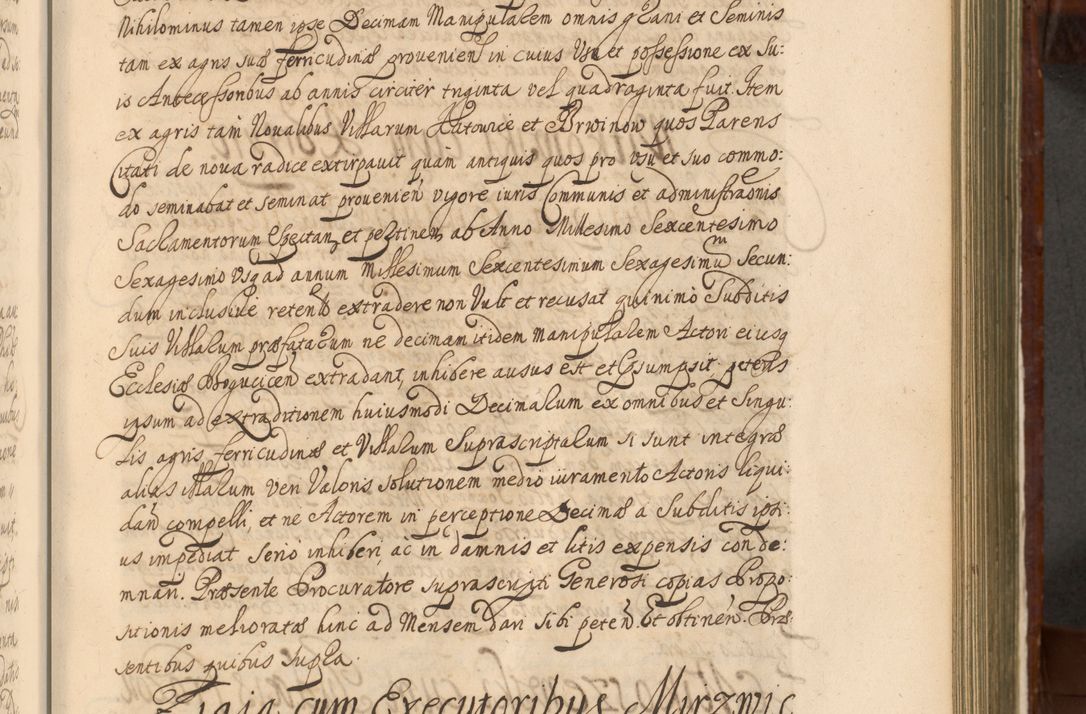 Nihilominus tamen ipse Decimam Manipularem omnis grani et Seminis
tam ex agris suæ ferricudinæ provenien in cuius Usu et possessione ex Su:
is Antecessoribus ab annis circiter triginta vel quadraginta fuit. Item
ex agris tam Novalibus Villarum Katowice et Brwinow quos Parens
Citati de nova radice extirpavit quam antiquis quos pro usu et suo commo:
do seminabat et seminat provenien vigore iuris Communis et administraonis
Sacramentorum spectan et pertinen ab Anno Millesimo Sexcentesimo
Sexagesimo Usq ad annum Millesimum Sexcentesimum Sexagesimũ Secun:
dum inclusive retent extradere non Vult et recusat quinimo Subditis
Suis Villarum præfatarum ne decimam itidem Manipularem Actori eiusq
Ecclesiæ Bogucicen extradant, inhibere ausus est et præsumpsit petens
ipsum ad extraditionem huiusmodi Decimarum ex omnibus et Singu:
lis agris ferricudinæ et Villarum Suprascriptarum si sunt integræ
alias illarum veri Valoris solutionem medio iuramento Actoris liqui:
dan compelli, et ne Actorem in perceptione Decimæ a Subditis ipsi:
us impediat serio inhiberi, ac in damnis et litis expensis conde:
mnari. Præsente Procuratore suprascripti Generosi copias Propo:
sitionis melioratæ hinc ad Mensem dari sibi peten. Et obtinen. Præ:
sentibus quibus supra.
cum Executoribus Mirzwic